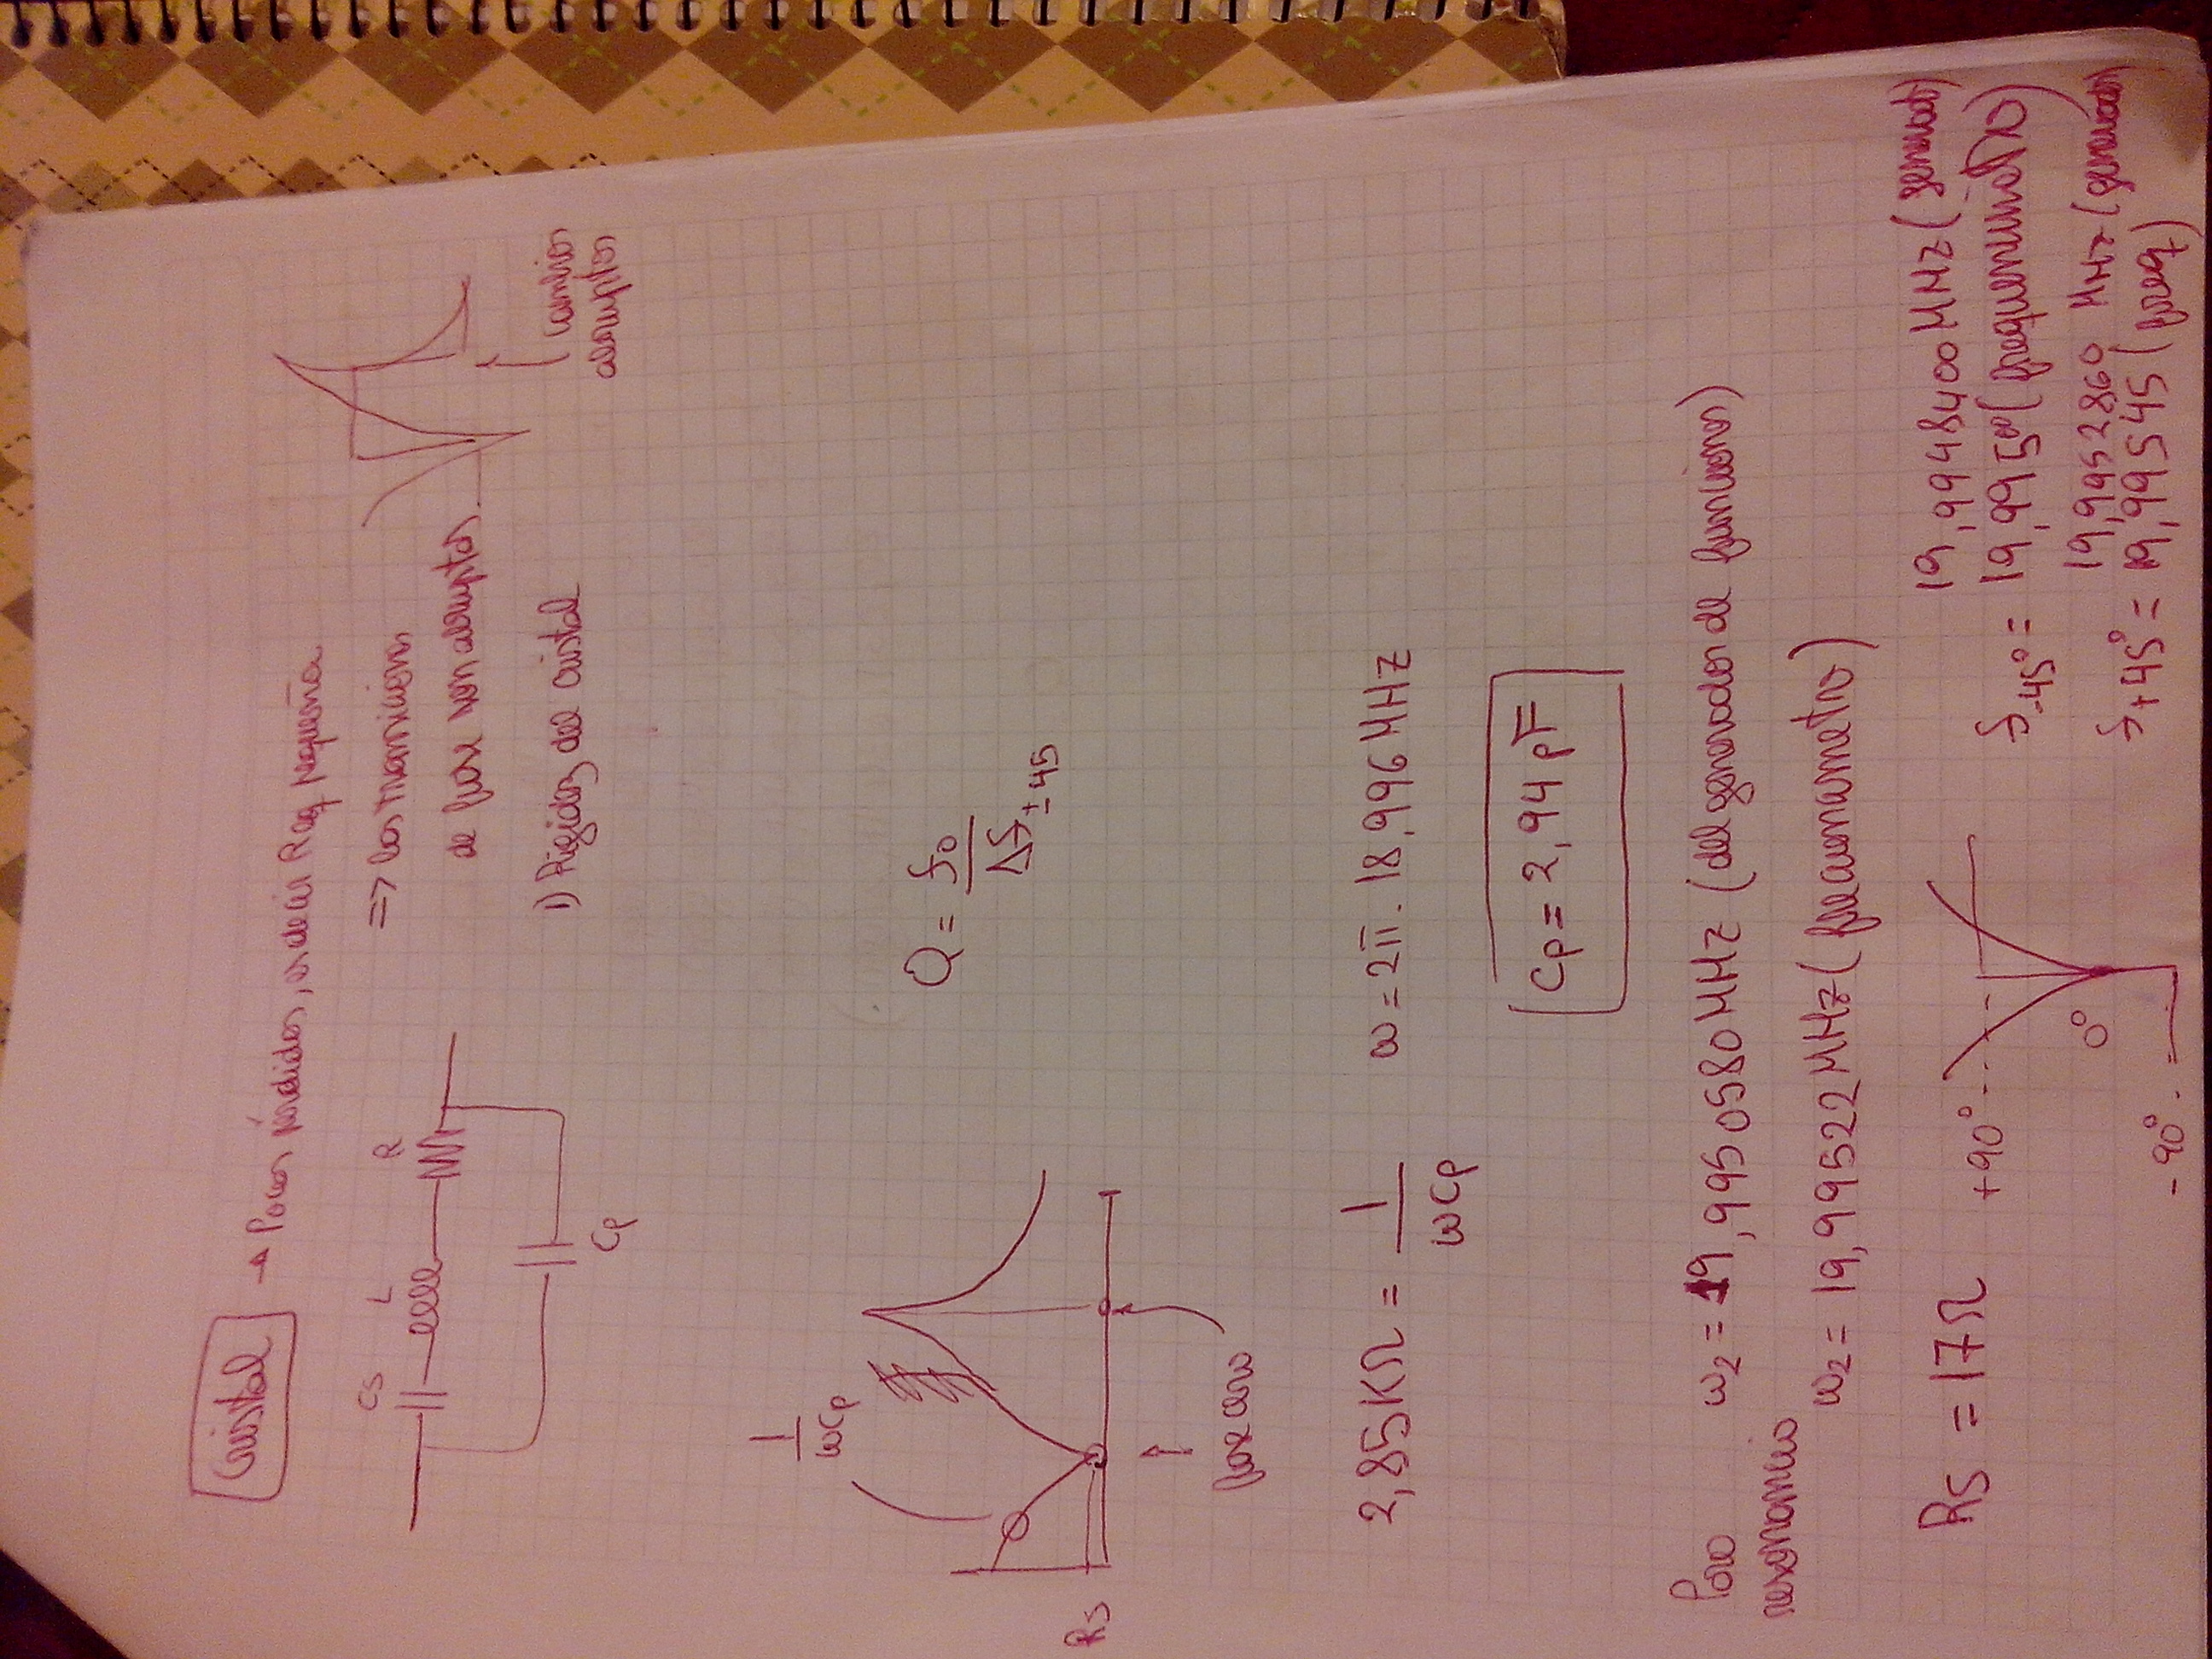 Cristal → Pocas pérdidas, es decir Req pequeña
=> las transiciones
de fase son abruptas.
1) Rigidez del cristal
cambios
abruptos
Cs L R
Cp
1
ωCp
Rs
fase cero
Q = f0
Δf±45
2,85KΩ = 1 / ωCp ω = 2π. 18,996 MHz
Cp = 2,94 pF
Para resonancia
ω2 = 19,9950580 MHz (del generador de funciones)
ω2 = 19,99522 MHz (frecuenciametro)
Rs = 17Ω
+90°
0°
-90°
19,9948400 MHz (generador)
f-45° = 19,99500
19,9952860 MHz (generador)
f+45° = 19,99545 (freq)